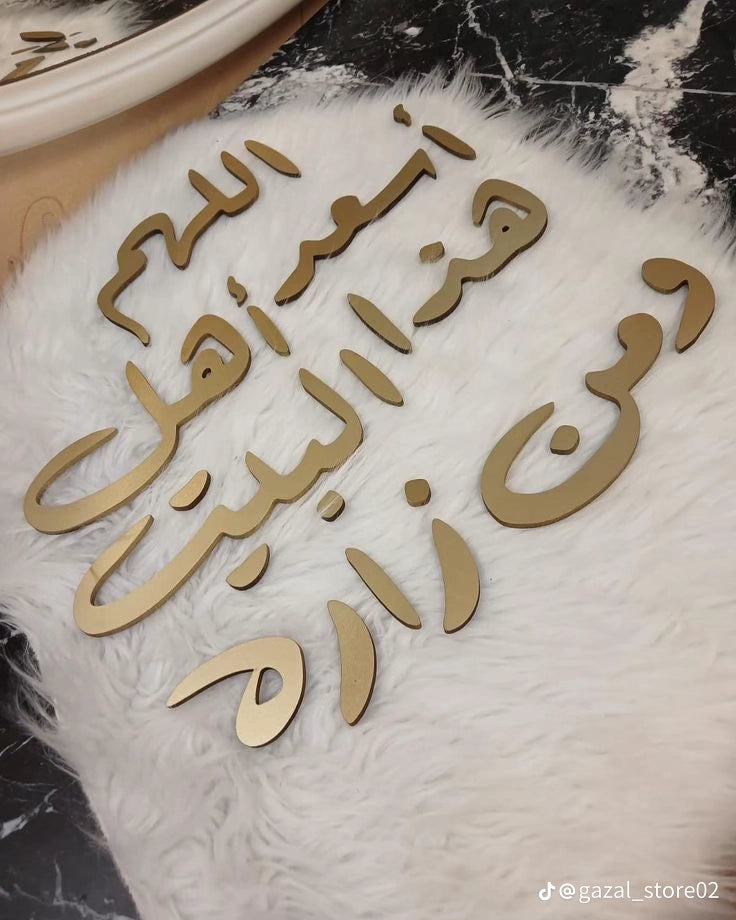 اللهم أسعد
أهل هذا
البيت
ومن
زاره
@gazal_store02